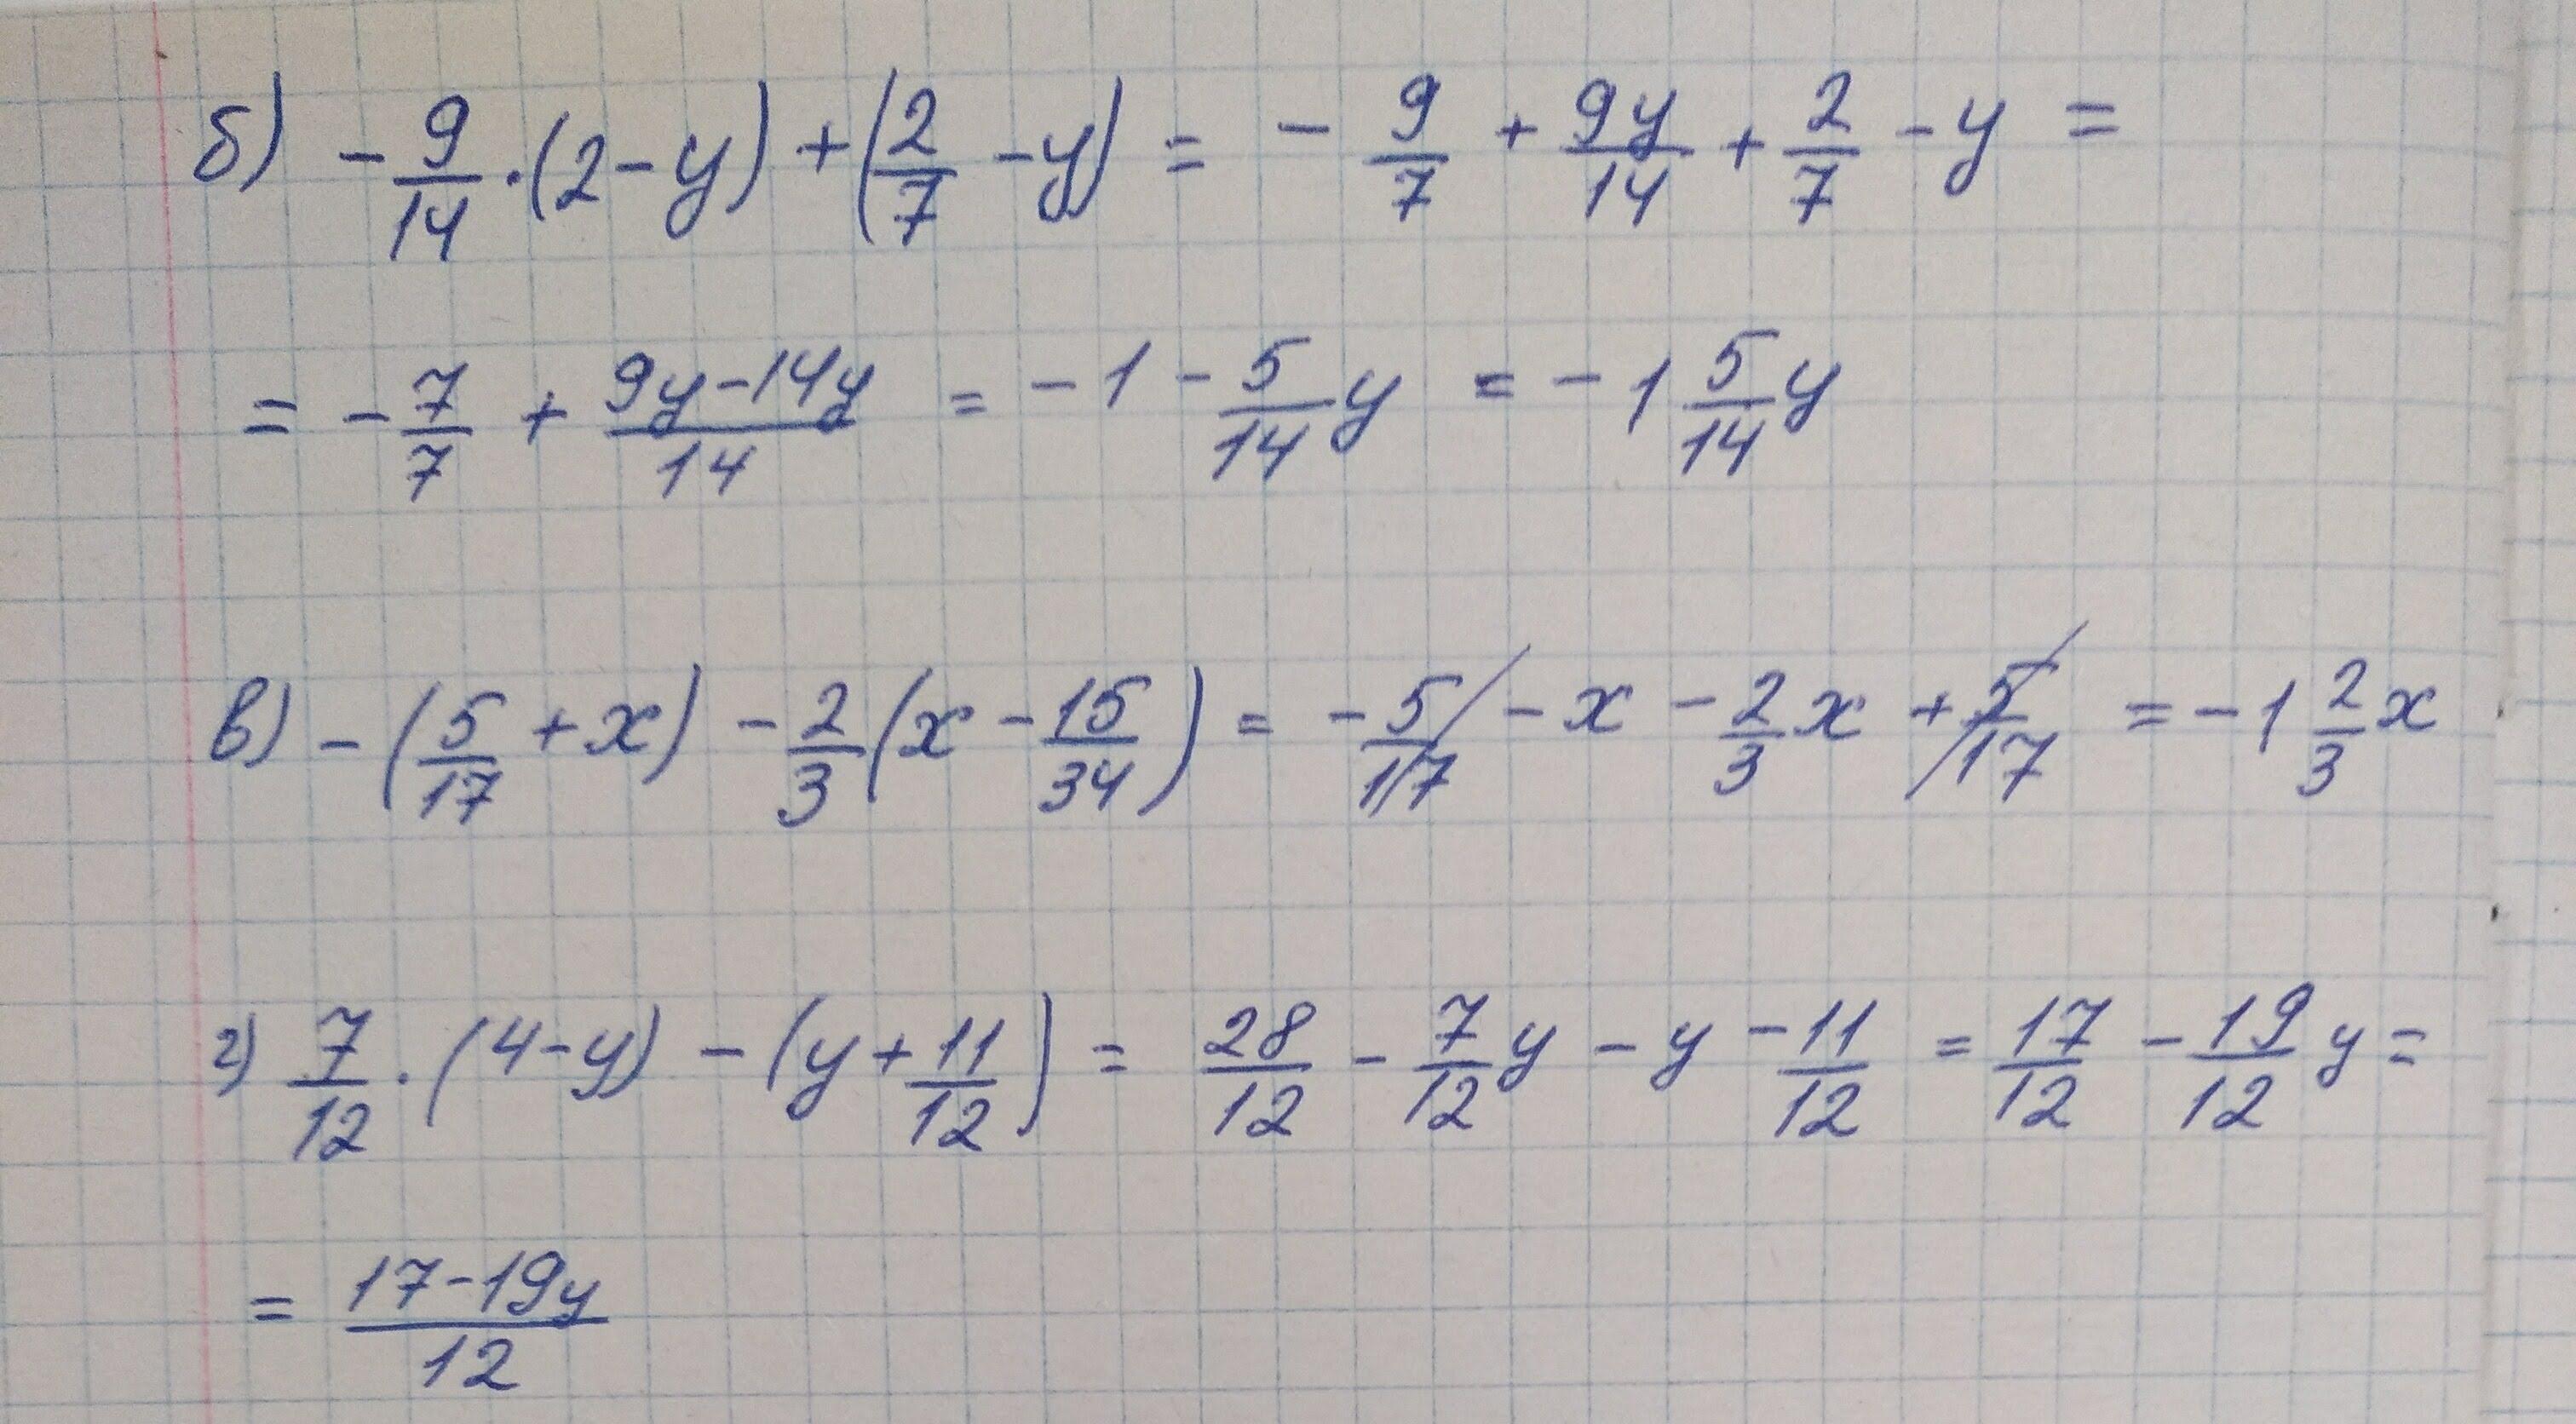 б) -9/14·(2-y)+(2/7-y) = -9/7+9y/14+2/7-y =
= -7/7+(9y-14y)/14 = -1-5/14y = -1 5/14y
в) -(5/17+x)-2/3(x-15/34) = -5/17-x-2/3x+5/17 = -1 2/3x
г) 7/12·(4-y)-(y+11/12) = 28/12-7/12y-y-11/12 = 17/12-19/12y =
= (17-19y)/12